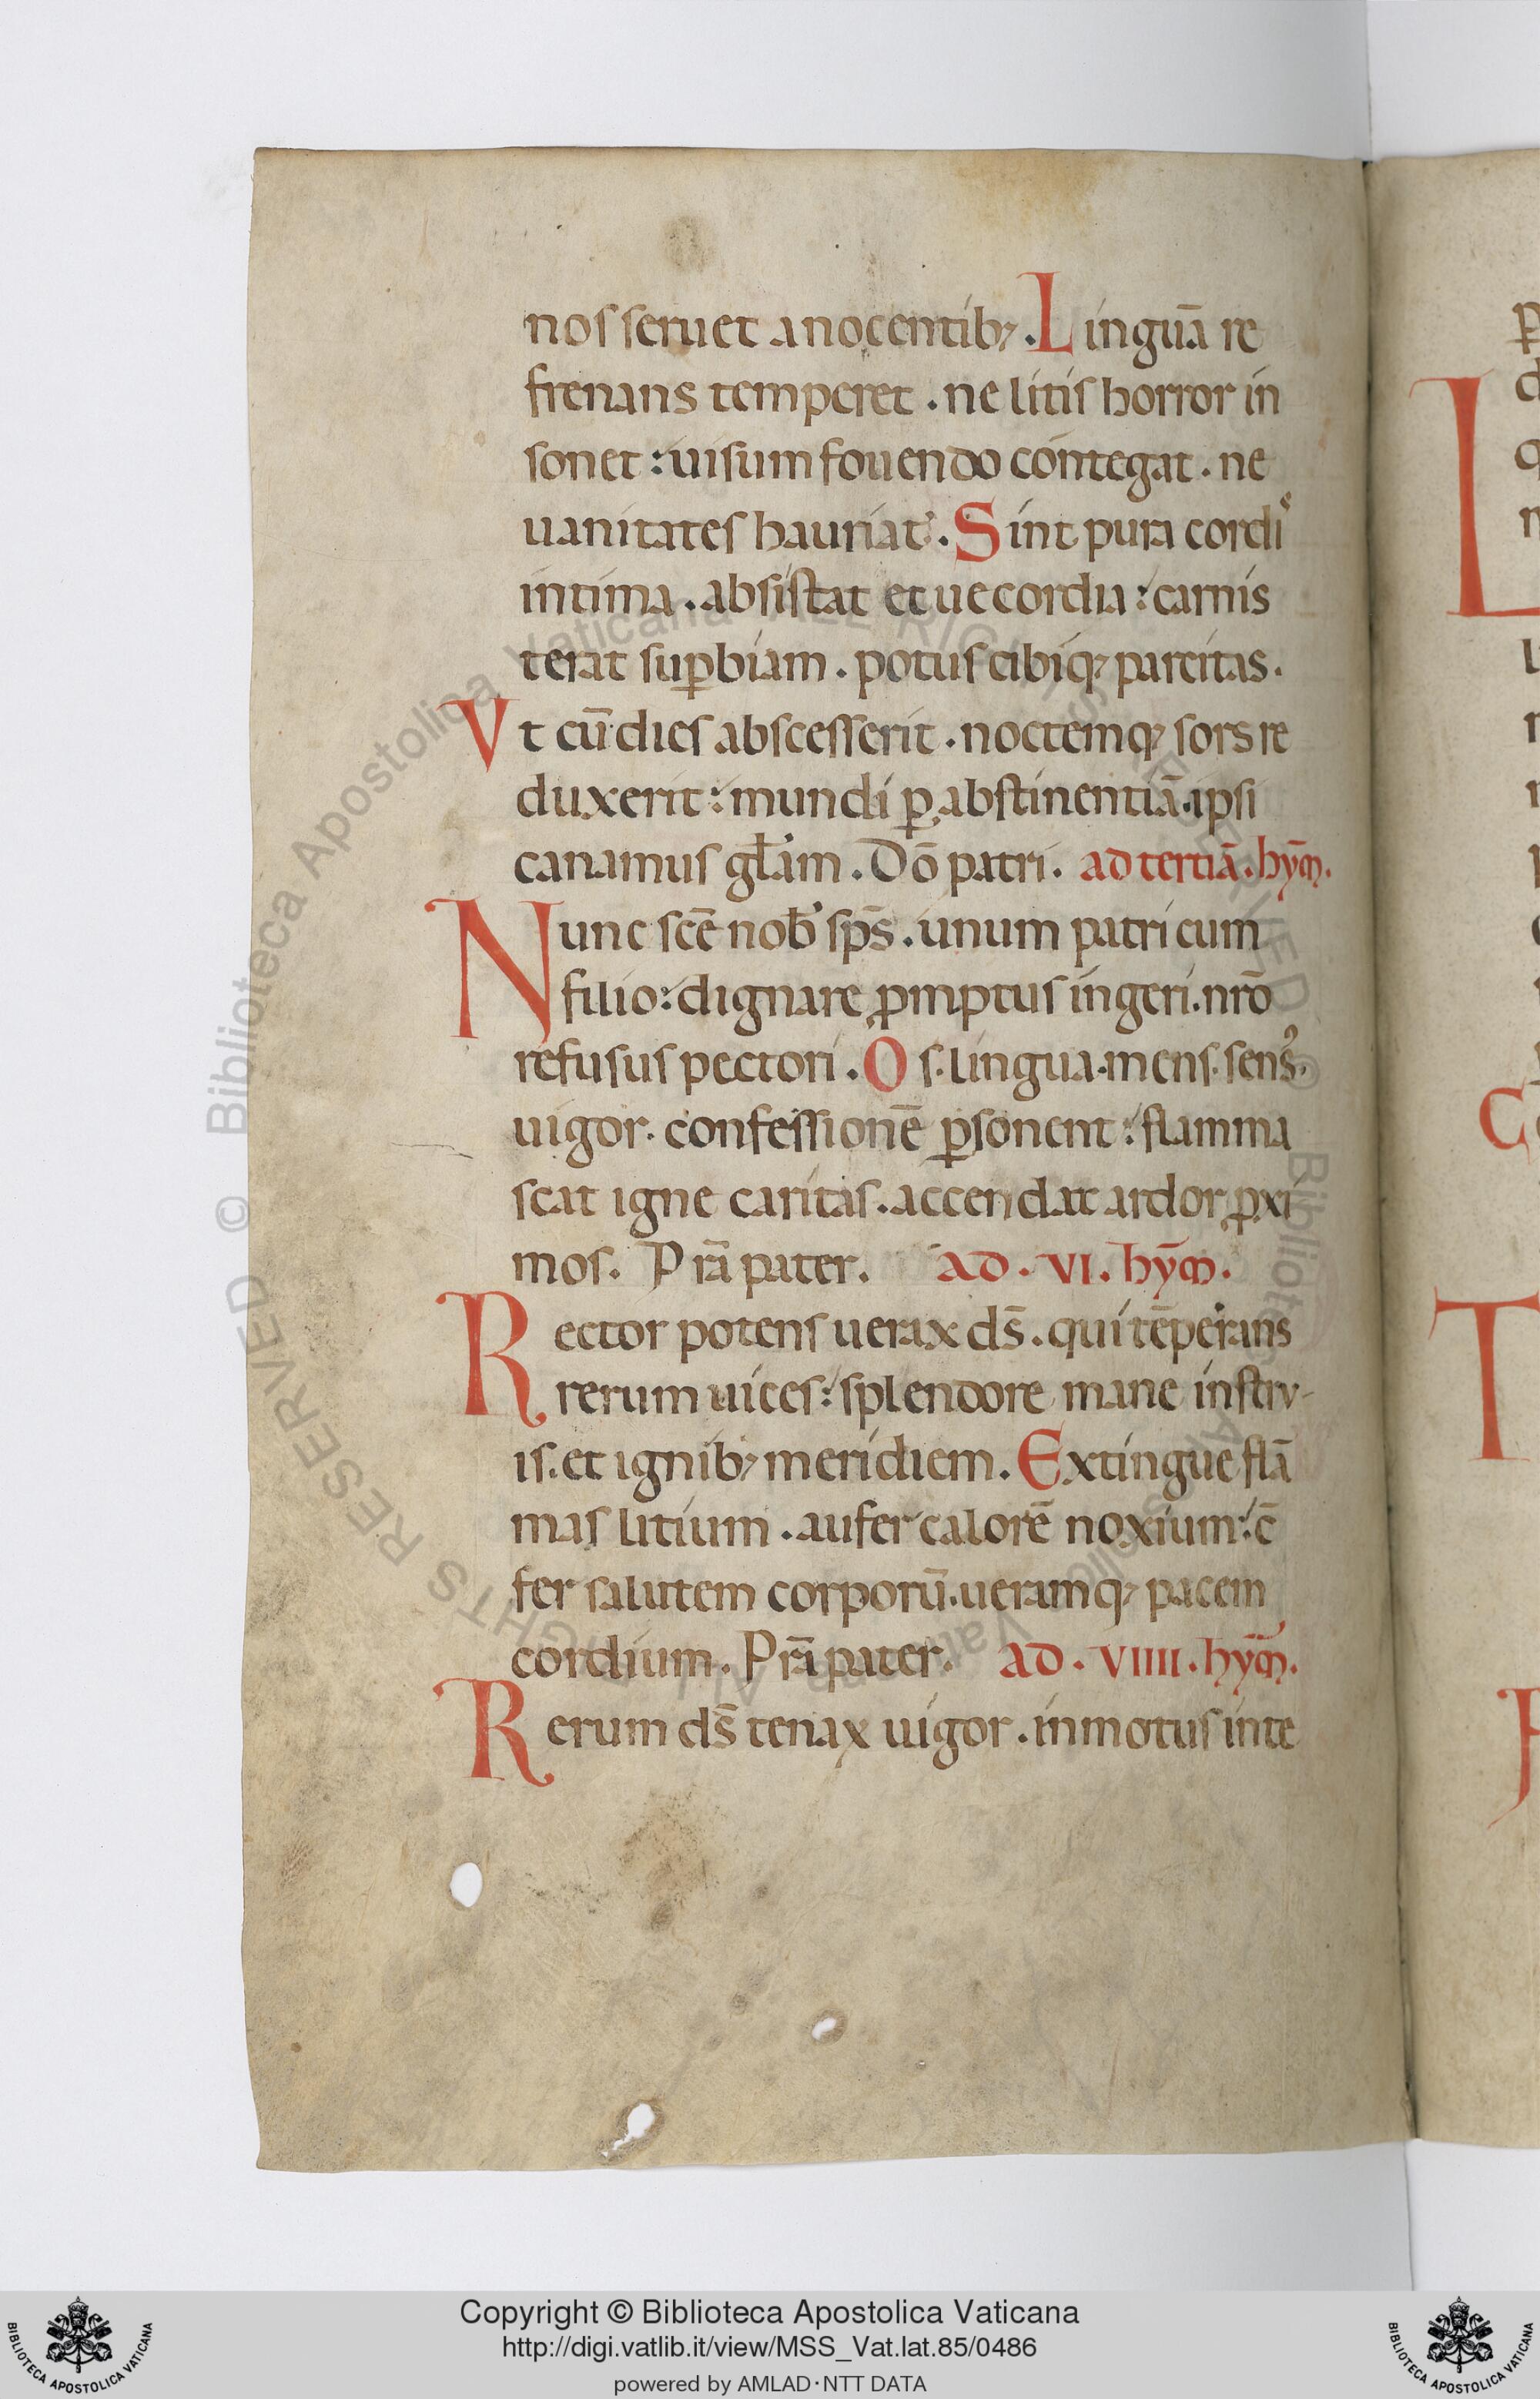 nos seruet a nocentib; . Linguā re
frenans temperet . ne litis horror in
sonet : uisum fouendo contegat . ne
uanitates hauriat . Sint pura cordiˢ
intima . absistat et uecordia : carnis
terat suꝑbiam . potus cibiq; parcitas .
Vt cū dies abscesserit . noctemq; sors re
duxerit : mundi ꝑ abstinentiā . ipsi
canamus gl̄am . Dō patri . ad tertiā . hȳm .
Nunc sc̄e nob̄ sp̄s . unum patri cum
filio : dignare ꝓmptus ingeri . nr̄o
refusus pectori . Os . lingua . mens . sensꝰ .
uigor . confessionē ꝑsonent : flamma
scat igne caritas . accendat ardor ꝓxi
mos . Prā pater . ad . VI . hȳm .
Rector potens uerax ds̄ . qui tēperans
rerum uices : splendore mane instru-
is . et ignib; meridiem . Extingue flā
mas litium . aufer calorē noxium : c̄
fer salutem corporū . ueramq; pacem
cordium . Prā pater . ad . VIIII . hȳm .
Rerum ds̄ tenax uigor . inmotus inte
Copyright © Biblioteca Apostolica Vaticana
http://digi.vatlib.it/view/MSS_Vat.lat.85/0486
powered by AMLAD·NTT DATA